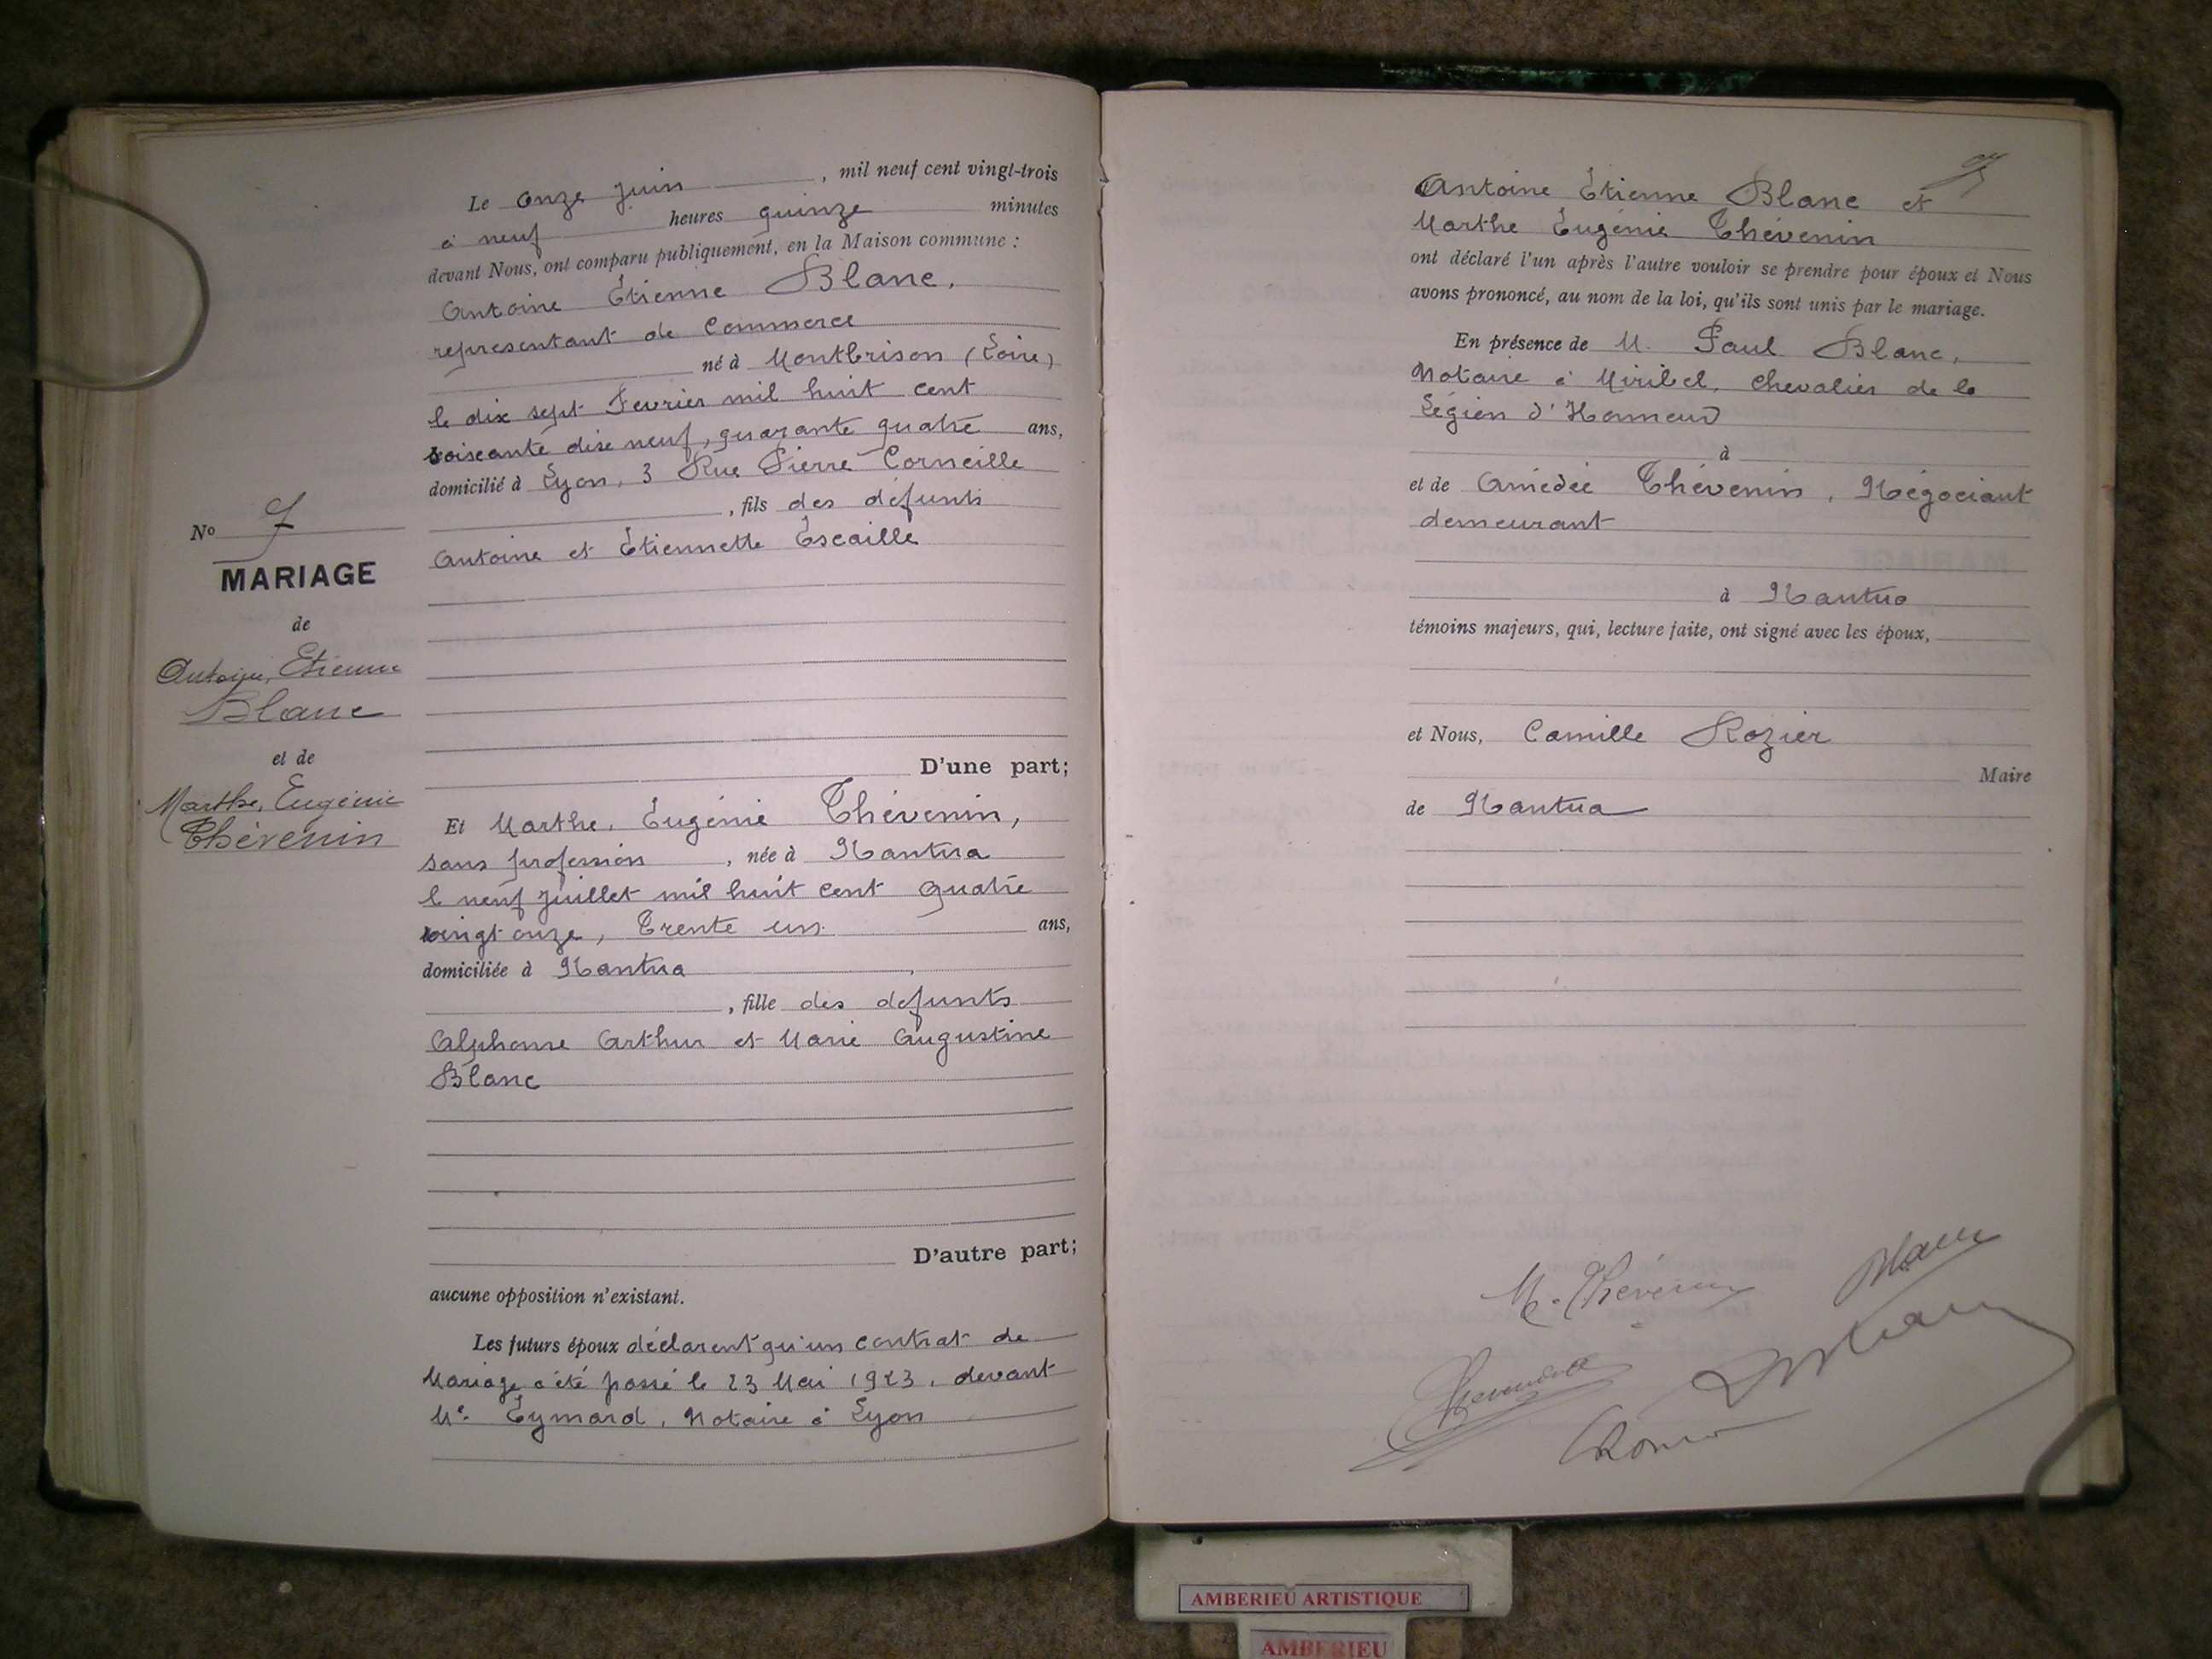 Le onze Juin , mil neuf cent vingt-trois
à neuf heures quinze minutes
devant Nous, ont comparu publiquement, en la Maison commune :
Antoine Étienne Blanc,
représentant de Commerce
né à Montbrison (Loire)
le dix sept Fevrier mil huit cent
soixante dix neuf, quarante quatre ans,
domicilié à Lyon, 3 Rue Pierre Corneille
, fils des défunts
Antoine et Étiennette Escaille
D'une part;
Et Marthe, Eugénie Thévenin,
sans profession , née à Nantua
le neuf Juillet mil huit cent quatre
vingt onze, Trente un ans,
domiciliée à Nantua
, fille des défunts
Alphonse Arthur et Marie Augustine
Blanc
D'autre part;
aucune opposition n'existant.
Les futurs époux déclarent qu'un contrat de
Mariage a été passé le 23 Mai 1923, devant
Me. Eymard, Notaire à Lyon
No 7
MARIAGE
de
Antoine, Etienne
Blanc
et de
Marthe, Eugénie
Thévenin
7
Antoine Étienne Blanc et
Marthe Eugénie Thévenin
ont déclaré l'un après l'autre vouloir se prendre pour époux et Nous
avons prononcé, au nom de la loi, qu'ils sont unis par le mariage.
En présence de M. Paul Blanc,
Notaire à Miribel, Chevalier de la
Légion d'Honneur
à
et de Amédée Thévenin, Négociant
demeurant
à Nantua
témoins majeurs, qui, lecture faite, ont signé avec les époux,
et Nous, Camille Rozier
Maire
de Nantua
M. Thévenin
Blanc
AMBERIEU ARTISTIQUE
AMBERIEU